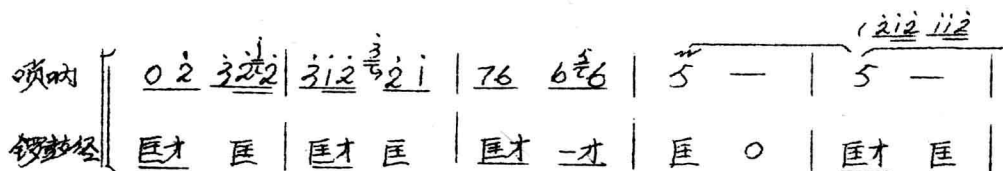 (2̇1̇2̇ 1̇1̇2̇
唢呐 0 2̇ 3̇2̇1̇2̇ | 3̇1̇2̇ 3̇2̇ 1̇ | 76 656 | 5 — | 5 — |
锣鼓经 匡才 匡 | 匡才 匡 | 匡才 一才 | 匡 0 | 匡才 匡 |